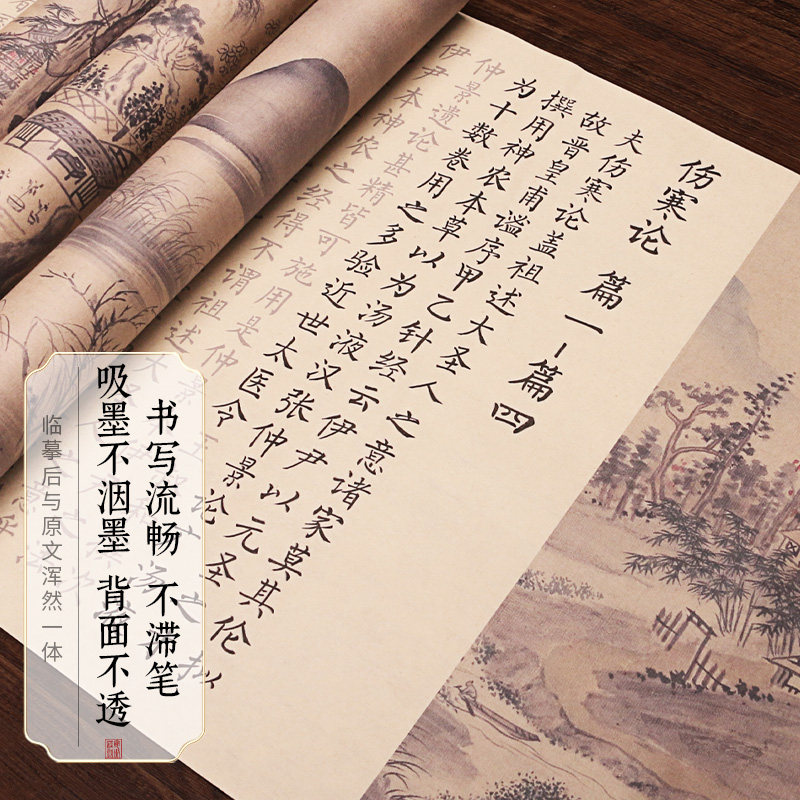 伤寒论 篇一-篇四
夫伤寒论盖祖述大圣人之意诸家莫其伦拟
故晋皇甫谧序甲乙针经云伊尹以元圣之
撰用神农本草以为汤液汉张仲景论
为十数卷用之多验近世太医令
仲景遗论甚精皆可施用是仲景
伊尹本神农之经得不谓祖述大
书写流畅 不滞笔
吸墨不洇墨 背面不透
临摹后与原文浑然一体